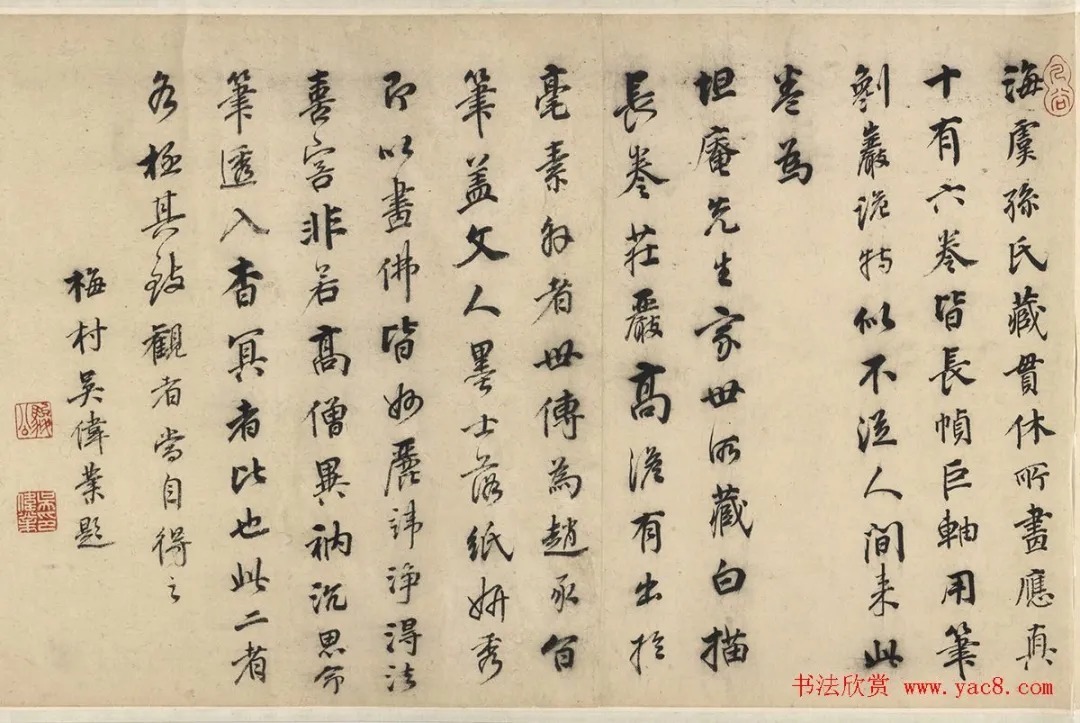 海虞孫氏藏貫休所畫應真
十有六卷皆長幀巨軸用筆
巖詭特似不從人間来此
卷為
坦庵先生家世所藏白描
長卷莊嚴高澹有出於
毫素外者世傳為趙承旨
筆盖文人墨士落紙妍秀
即以畫佛皆妙麗淨得法
喜容非若高僧異衲沉思命
筆透入杳冥者比也此二者
各極其致觀者當自得之
梅村吳偉業題
駿公
吳偉業印
书法欣赏 www.yac8.com